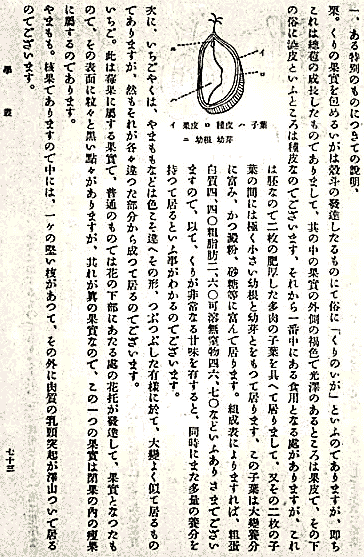 一、ある特別のものについての說明、
栗。くりの果實を包めるいがは殼斗の發達したるものにて俗に「くりのいが」といふのでありますが、卽ち
これは總苞の成長したものでありまして、其の中の果實の外側の褐色で光澤のあるところは果皮で、その下
の俗に澁皮といふところは種皮なのでございます、それから一番中にある食用となる處がありますが、これ
は胚なので二枚の肥厚した多肉の子葉を具へて居りまして、又その二枚の子
葉の間には極く小さい幼根と幼芽とをもつて居ります、この子葉は大變養分
に富み、かつ澱粉、砂糖等に富んで居ります。組成表によりますれば、粗蛋
白質四、四〇粗脂肪二、六〇可溶無窒物四六、七〇などいふあり さまでござい
ますので、以て、くりが非常なる甘味を有すると、同時にまた多量の養分を
持つて居るといふ事がわかるのでございます。
イ 果皮 ロ 種皮 ハ 子葉
ニ 幼根 幼芽
イ
ロ
ハ
ニ
次に、いちごやくは、やまももなどは色こそ違へその形、つぶつぶした有樣に於て、大變よく似て居るもの
でありますが、然もそれが各々違つた部分から成つて居るのでございます。
いちご。此は莓果に屬する果實で、普通のものでは花の下部にあたる處の花托が發達して、果實となつたも
ので、その表面に粒々と黑い點々がありますが、其れが眞の果實なので、この一つの果實は閉果の內の瘦果
に屬するのであります。
やまもも。核果でありますので中には、一ヶの堅い核があつて、その外に肉質の乳頭突起が澤山ついて居る
のでございます。
學 叢
七十三